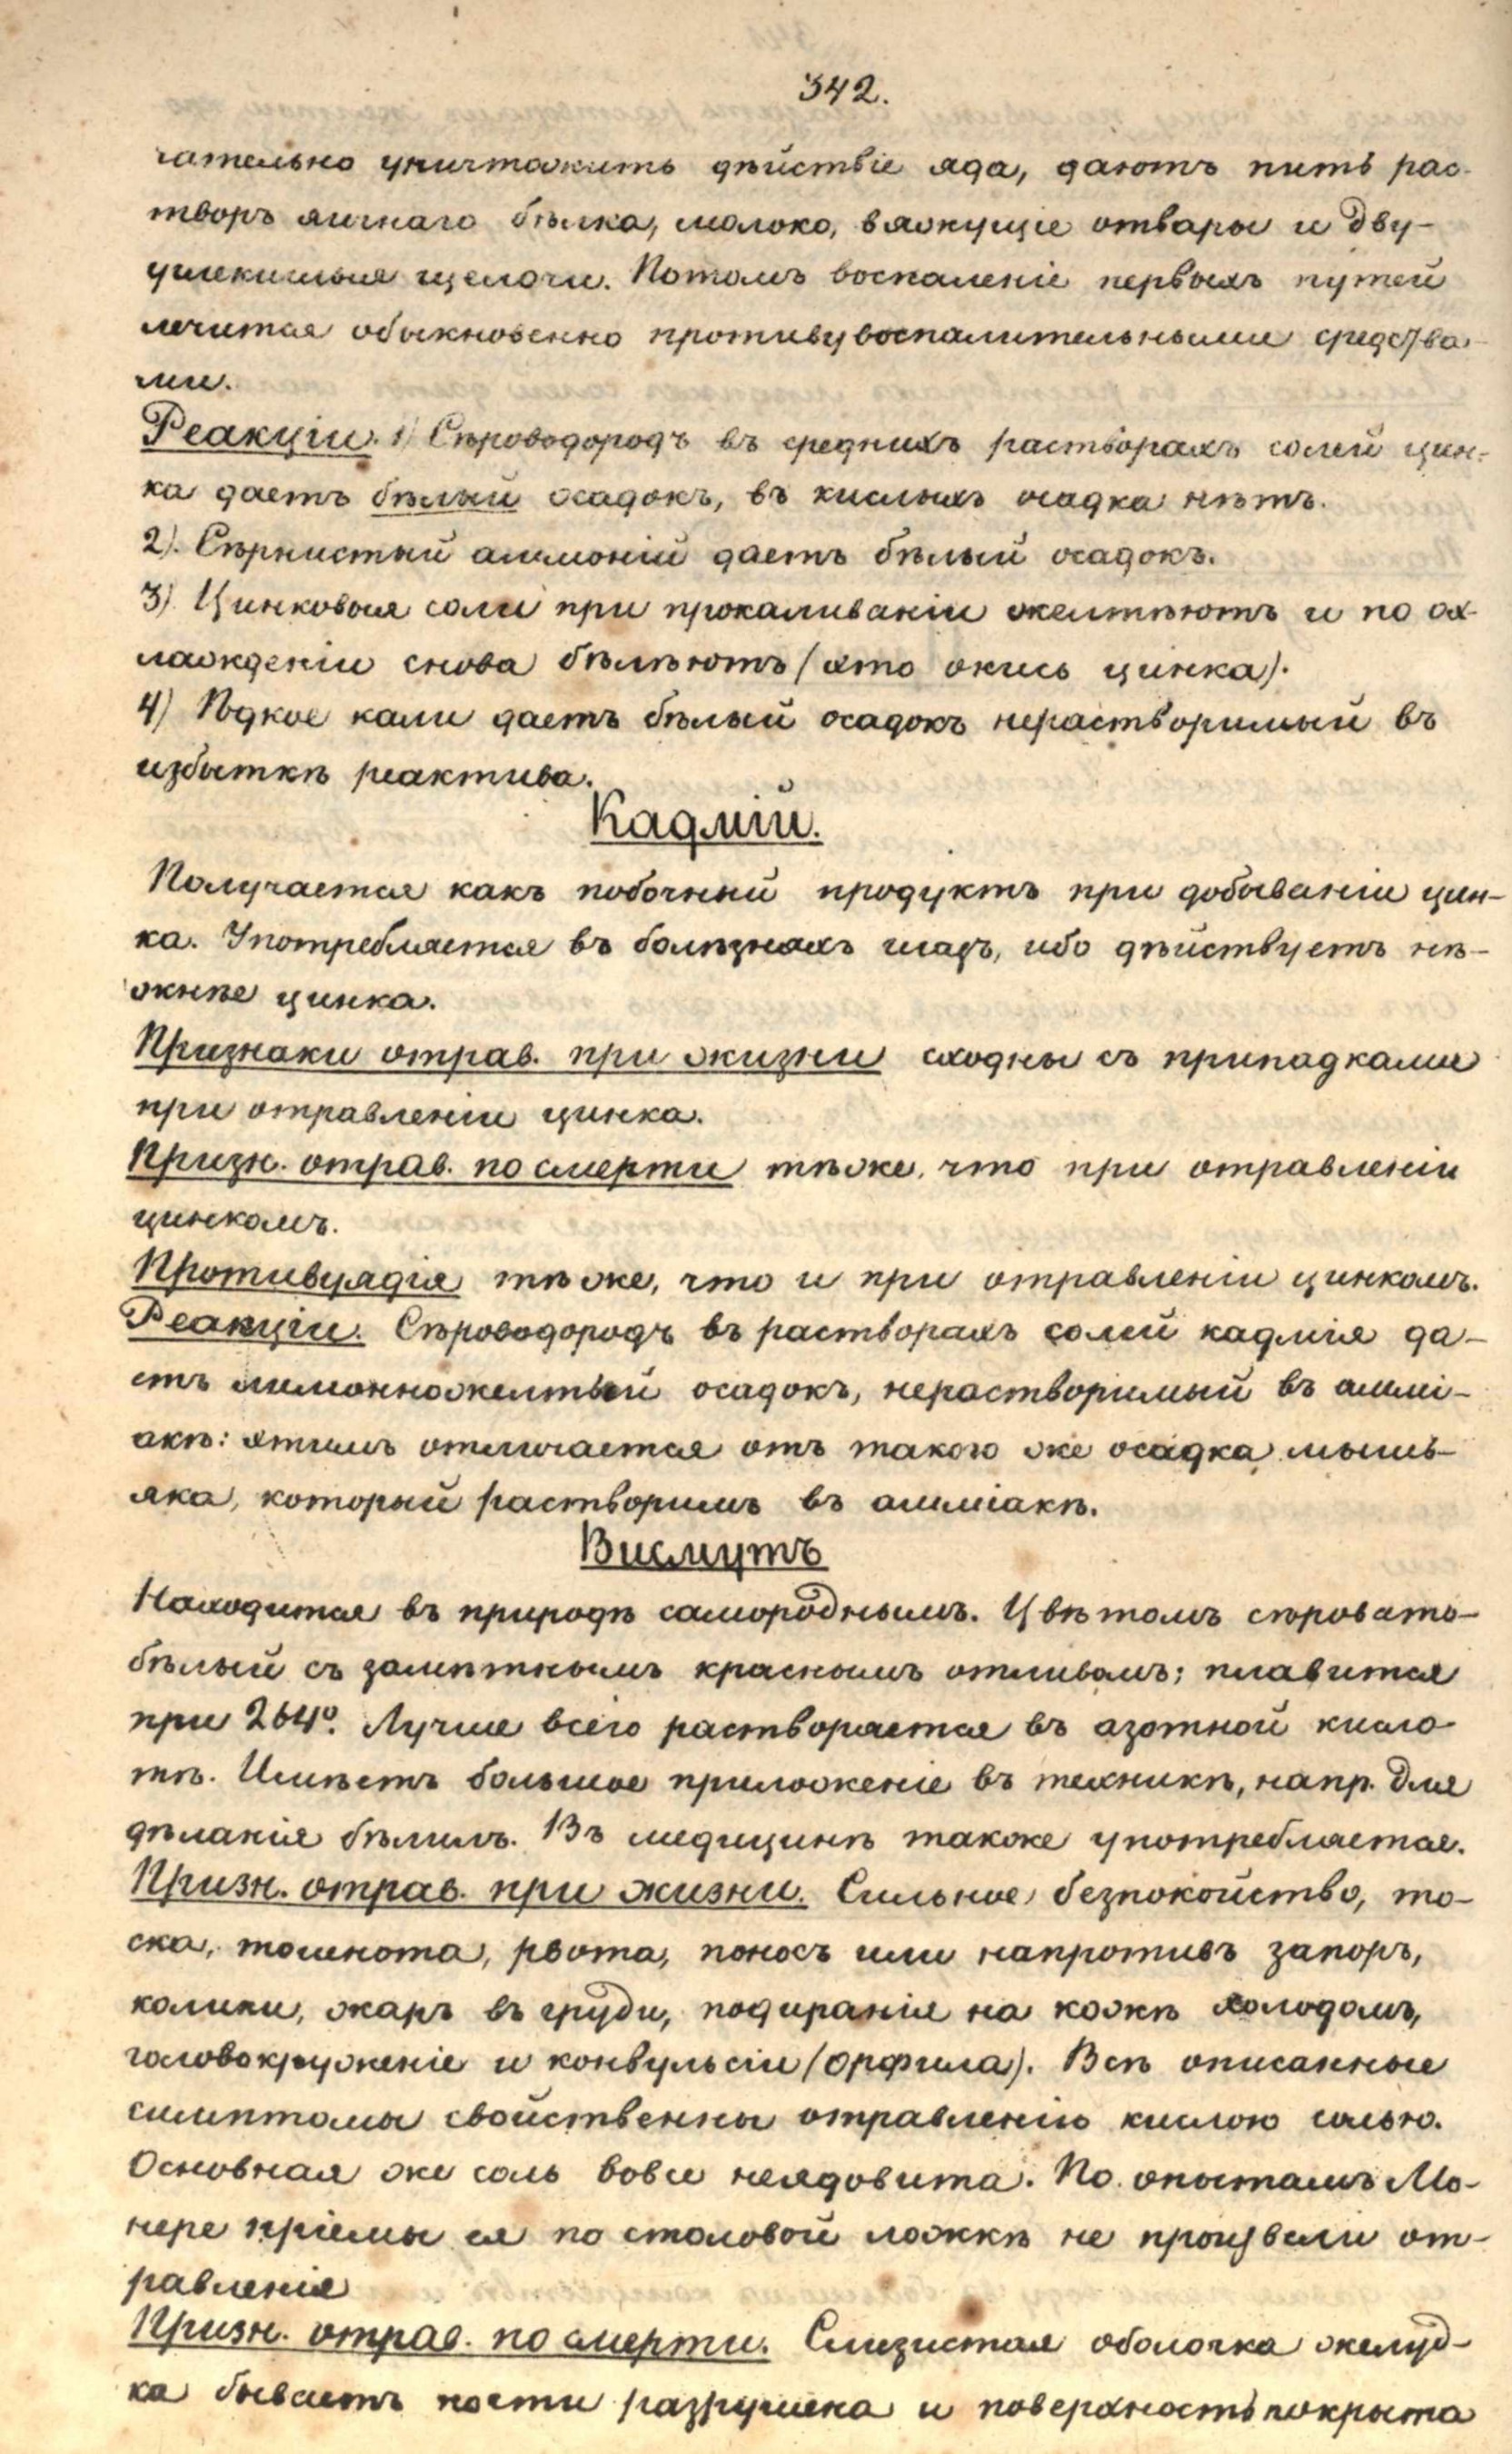 342.
чательно уничтожить дѣйствіе яда, даютъ пить рас-
творъ яичнаго бѣлка, молоко, вяжущіе отвары и дву-
углекислыя щелочи. Потомъ воспаленіе первыхъ путей
лечится обыкновенно противувоспалительными средства-
ми.
Реакціи. 1) Сѣроводородъ въ среднихъ растворахъ солей цин-
ка даетъ бѣлый осадокъ, въ кислыхъ осадка нѣтъ.
2). Сѣрнистый аммоній даетъ бѣлый осадокъ.
3) Цинковыя соли при прокаливаніи желтѣютъ и по ох-
лажденіи снова бѣлѣютъ (это окись цинка).
4) Ѣдкое кали даетъ бѣлый осадокъ нерастворимый въ
избыткѣ реактива.
Кадмій.
Получается какъ побочный продуктъ при добываніи цин-
ка. Употребляется въ болѣзняхъ глазъ, ибо дѣйствуетъ нѣ-
жнѣе цинка.
Признаки отрав. при жизни сходны съ припадками
при отравленіи цинка.
Призн. отрав. по смерти тѣже, что при отравленіи
цинкомъ.
Противуядія тѣже, что и при отравленіи цинкомъ.
Реакціи. Сѣроводородъ въ растворахъ солей кадмія да-
етъ лимонножелтый осадокъ, нерастворимый въ аммі-
акѣ: этимъ отличается отъ такого же осадка мышь-
яка, который растворимъ въ амміакѣ.
Висмутъ
Находится въ природѣ самороднымъ. Цвѣтомъ сѣровато-
бѣлый съ замѣтнымъ краснымъ отливомъ; плавится
при 264°. Лучше всего растворяется въ азотной кисло-
тѣ. Имѣетъ большое приложеніе въ техникѣ, напр. для
дѣланія бѣлилъ. Въ медицинѣ также употребляется.
Призн. отрав. при жизни. Сильное безпокойство, то-
ска, тошнота, рвота, поносъ или напротивъ запоръ,
колики, жаръ въ груди, подиранія на кожѣ холодомъ,
головокруженіе и конвульсіи (Орфила). Всѣ описанные
симптомы свойственны отравленію кислою солью.
Основная же соль вовсе неядовита. По опытамъ Мо-
нере пріемы ея по столовой ложкѣ не произвели от-
равленія
Призн. отрав. по смерти. Слизистая оболочка желуд-
ка бываетъ почти разрушена и поверхность покрыта